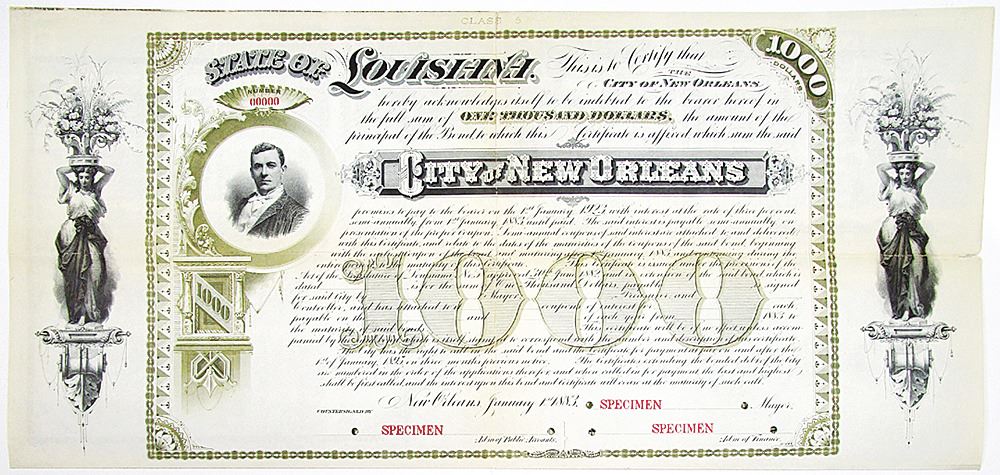 CLASS 5
STATE OF LOUISIANA. This is to Certify that
1000
DOLLARS
NUMBER
00000
THE
CITY OF NEW ORLEANS
hereby acknowledges itself to be indebted to the bearer hereof in
the full sum of ONE THOUSAND DOLLARS, the amount of the
principal of the Bond to which this Certificate is affixed which sum the said
CITY OF NEW ORLEANS
promises to pay to the bearer on the 1st January, 1923, with interest at the rate of three per cent.
semi-annually from 1st January 1883 until paid. The said interest is payable semi-annually on
presentation of the proper coupon. Semi-annual coupons of said interest are attached to and delivered
with this Certificate, and relate to the dates of the maturities of the coupons of the said bond, beginning
with the coupon of the bond maturing 1st of January 1883 and maturing during the
maturity of this Certificate is issued under the provisions of the
Act of the Legislature of Louisiana No. approved 30th June 1882, in extension of the said bond which is
dated is for the sum of One Thousand Dollars, payable signed
for said City by Mayor and
Controller, and has attached to it coupons of interest for each
payable on the and of each year from 1883 to
the maturity of said bond. This certificate will be of no effect unless accom
panied by the said bond to correspond with the number and description of this certificate
The City has the right to call in the said bond and the certificate for payment at par on and after the
1st of January, 1895, on three months previous notice. The certificates extending the bonded debt of the City
are numbered in the order of the applications therefor and when called in for payment the last and highest
shall be first called, and the interest upon this bond and certificate will cease at the maturity of such call.
1000
1000
New Orleans, January 1st 1883.
SPECIMEN Mayor.
COUNTERSIGNED BY
SPECIMEN
SPECIMEN
Adm of Public Accounts.
Adm of Finance.